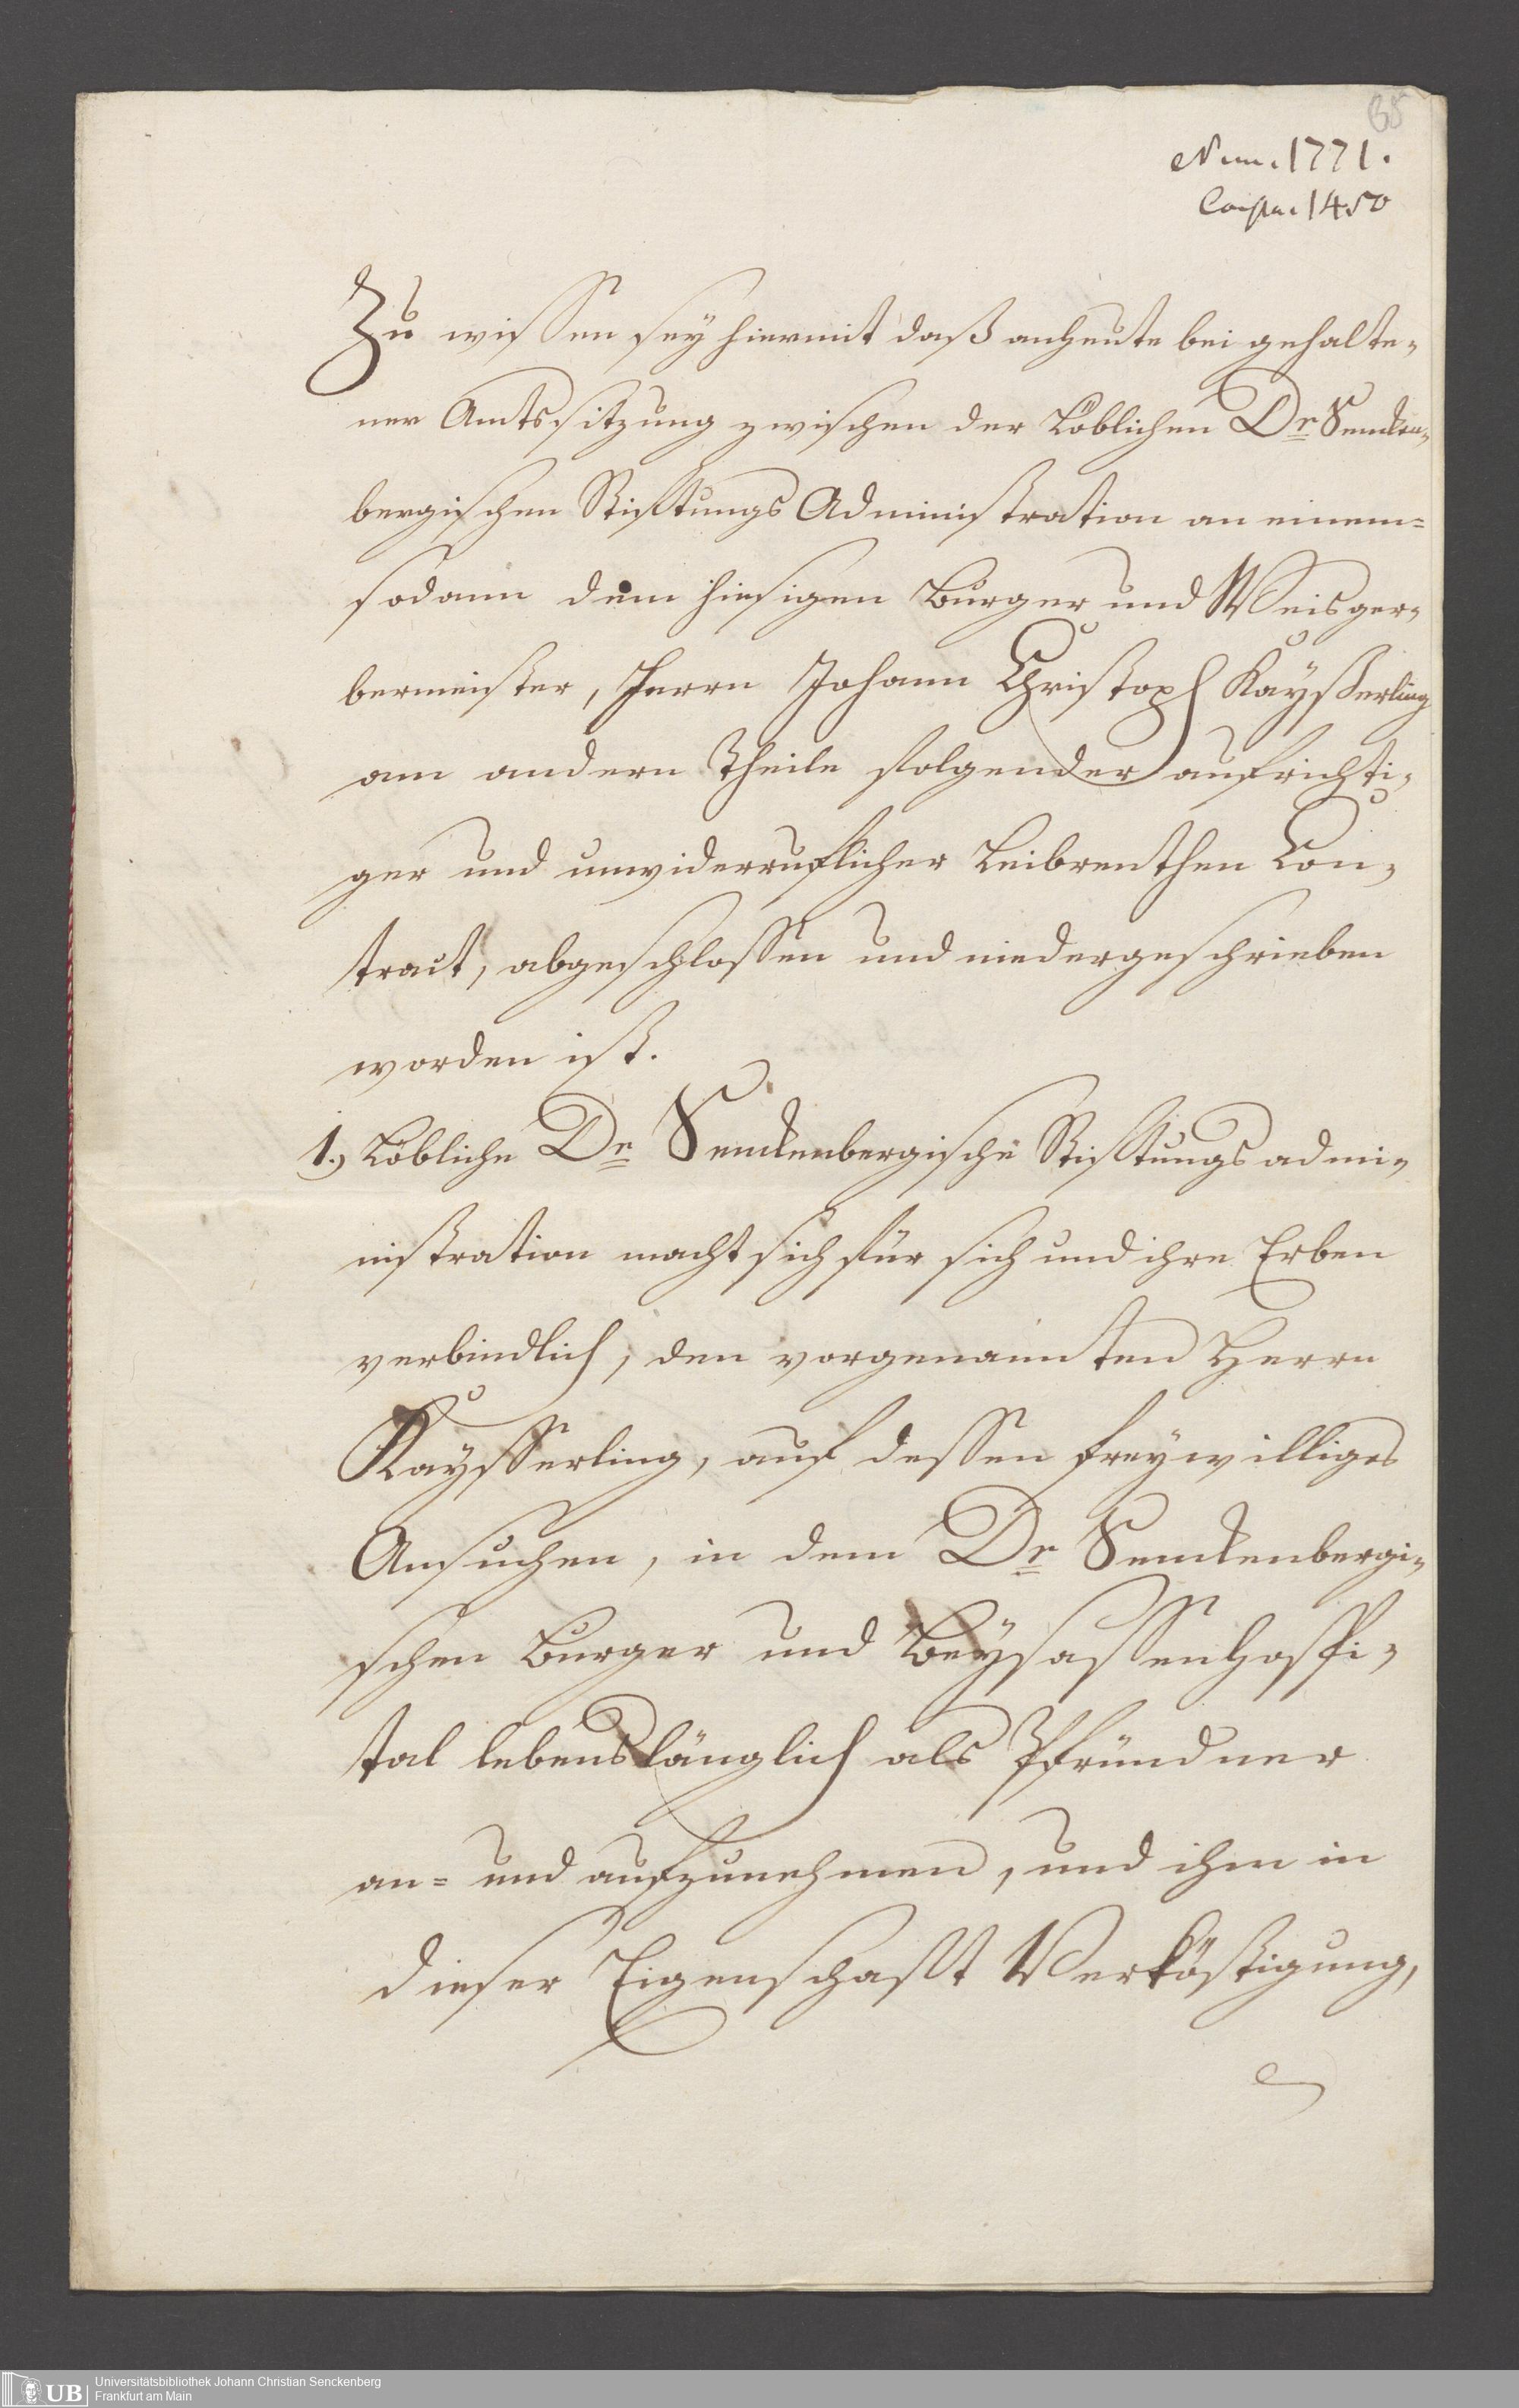 65
Num. 1771.
Consign. 1450
Zu wissen sey hiermit daß anheute bei gehalte-
ner Amtssitzung zwischen der Löblichen Dr Sencken-
bergischen Stiftungs Administration an einem-
sodann dem hiesigen Burger und Weisger-
bermeister, Herrn Johann Christoph Kaysserling
am andern Theile folgender aufrichti-
ger und unwiderruflicher Leibrenthen Con-
tract, abgeschlossen und niedergeschrieben
worden ist.
1.) Löbliche Dr Senckenbergische Stiftungsadmi-
nistration macht sich für sich und ihre Erben
verbindlich, den vorgenannten Herrn
Kaysserling, auf dessen freywilliges
Ansuchen, in dem Dr Senckenbergi-
schen Burger und Beysassenhospi-
tal lebenslänglich als Pfründner
an= und aufzunehmen, und ihm in
dieser Eigenschaft Verköstigung,
UB
Universitätsbibliothek Johann Christian Senckenberg
Frankfurt am Main